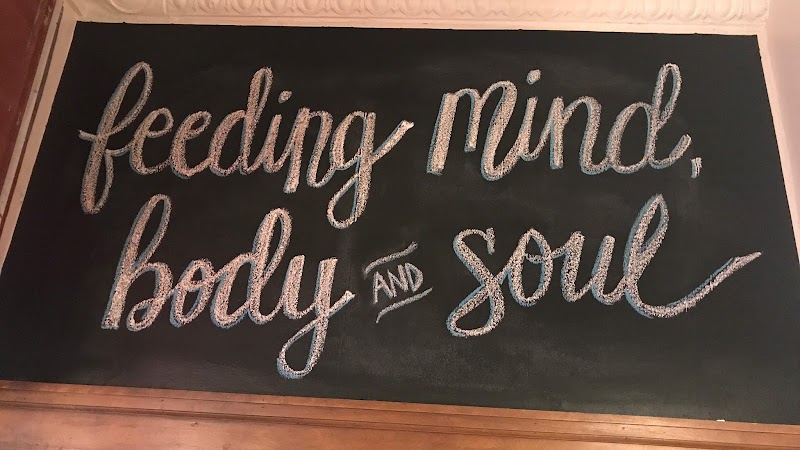 feeding mind,
body AND soul